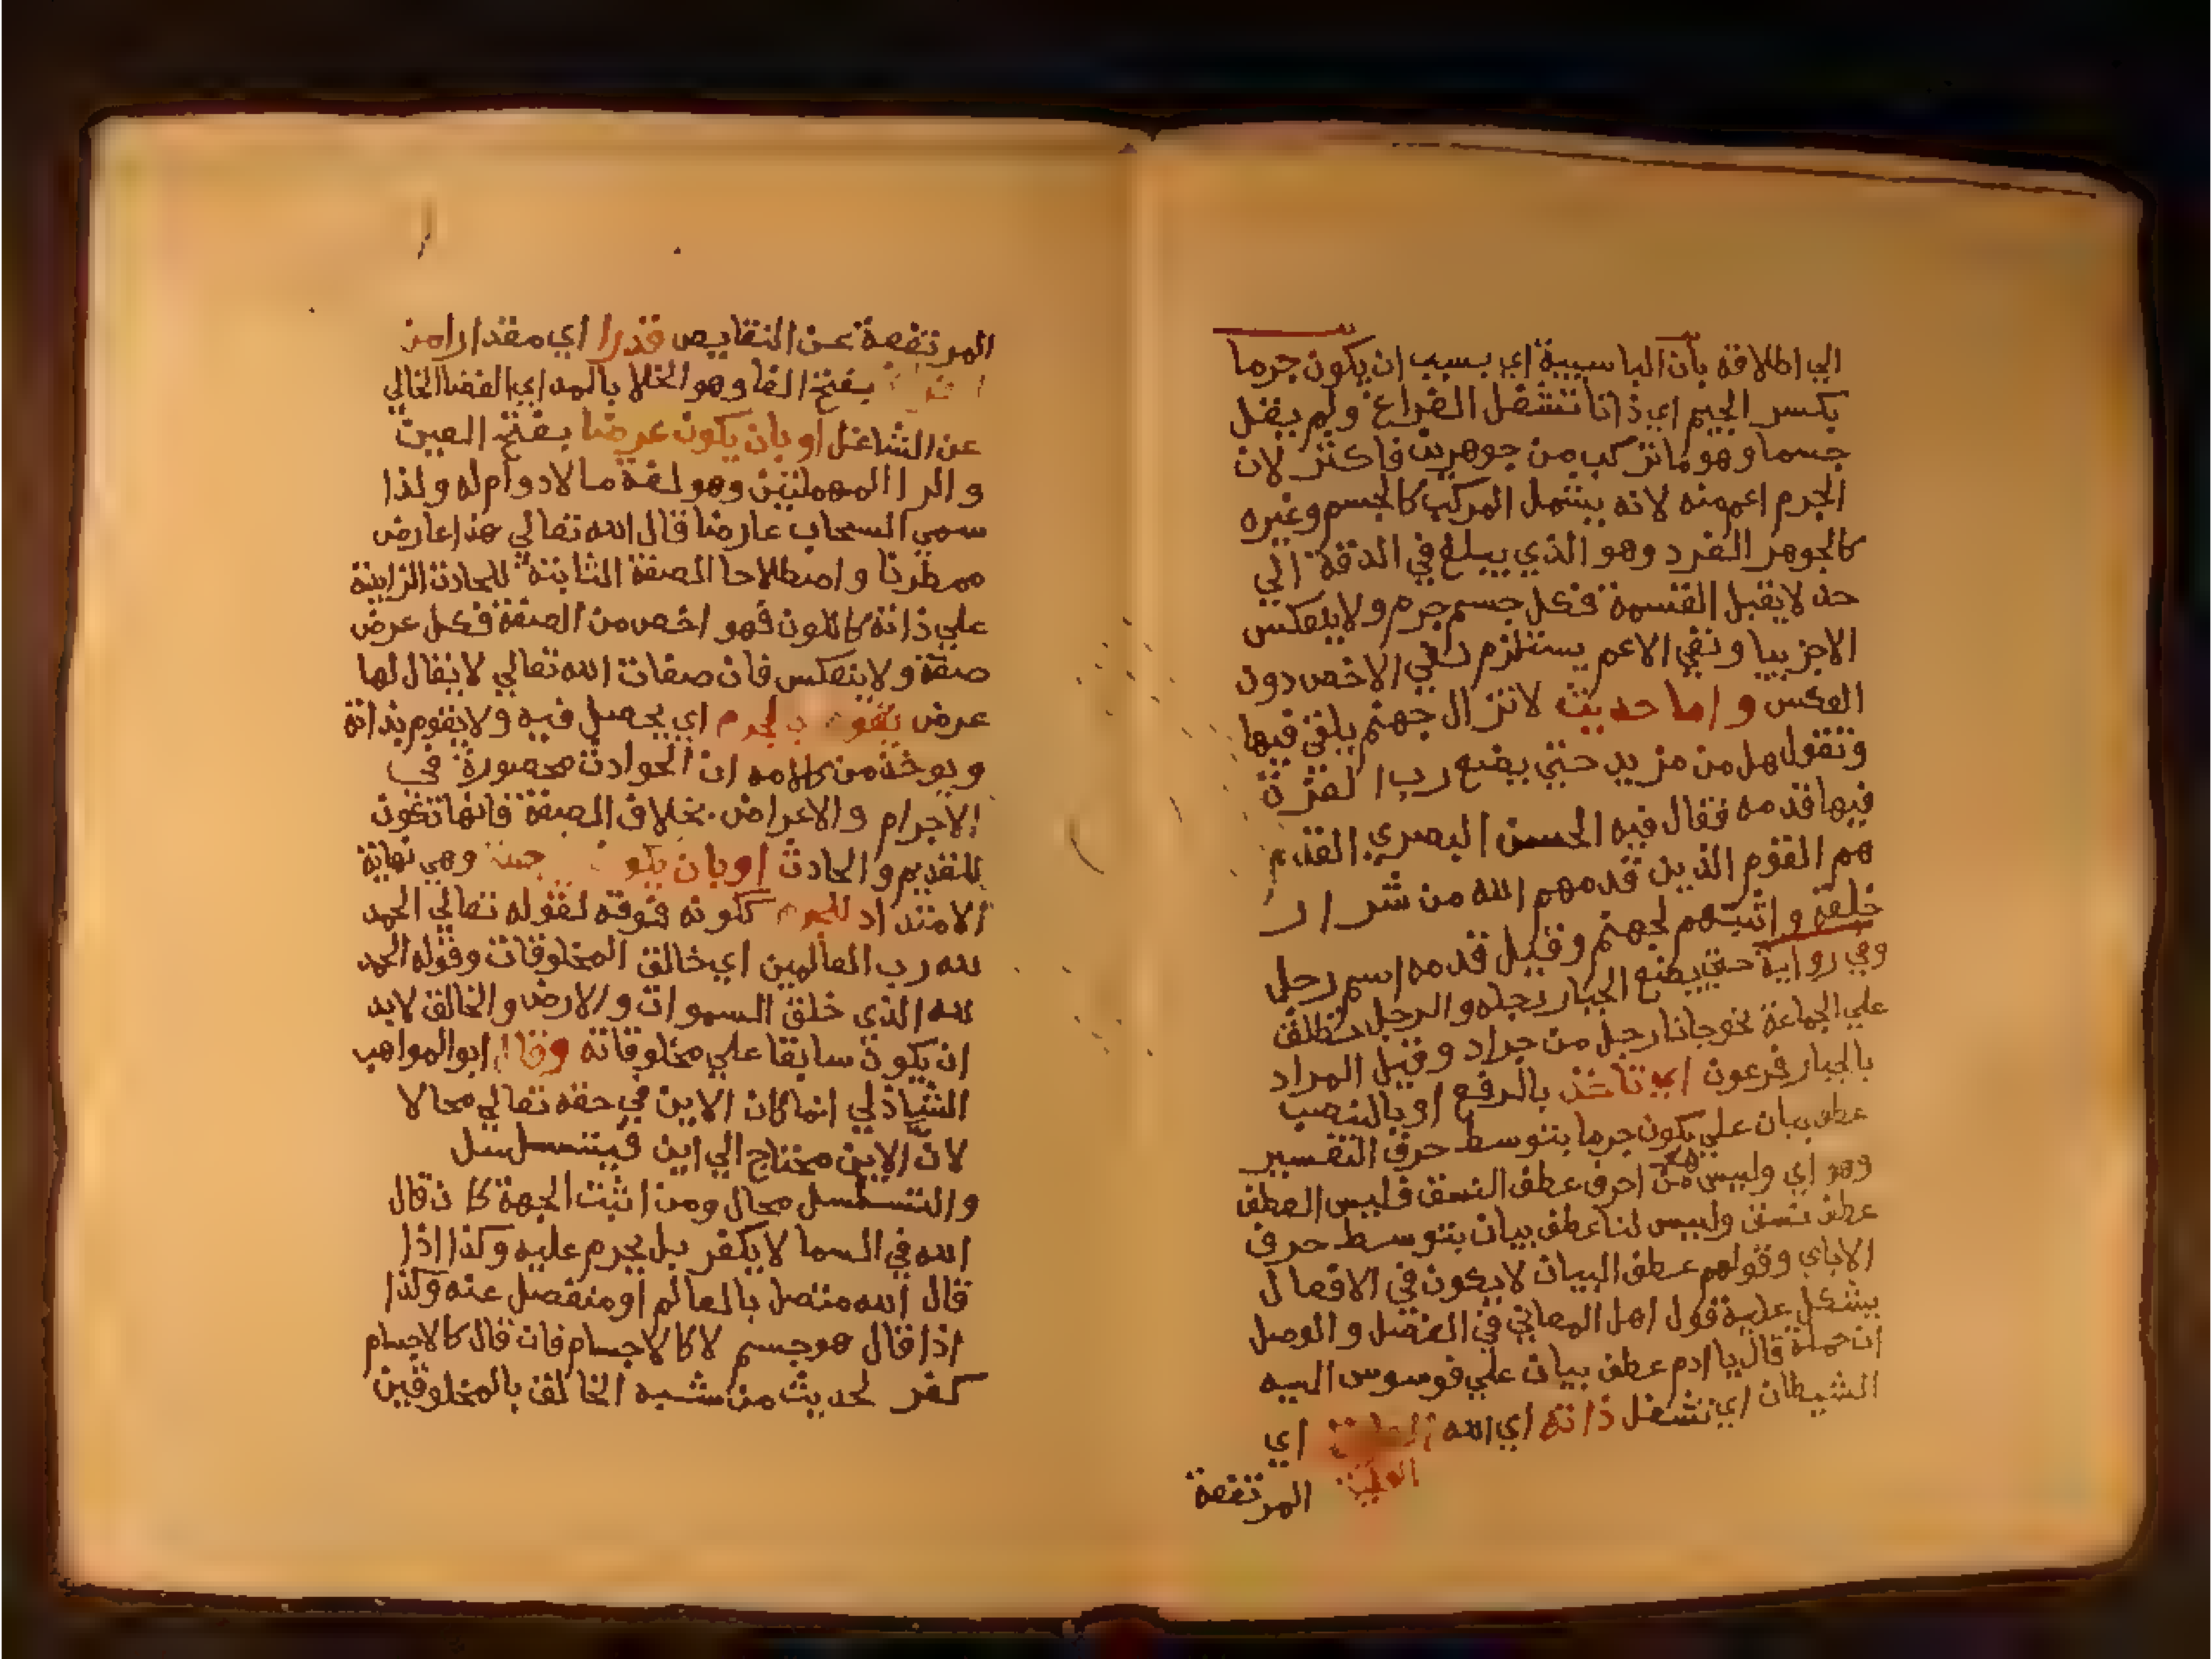 الي اطلاقه بان البا سببية اي بسبب ان يكون جرما
بكسر الجيم اي ذاتا تشغل الفراغ ولم يقل
جسما وهو ما تركب من جوهرين فاكثر لان
الجرم اعم منه لانه يشمل المركب كالجسم وغيره
كالجوهر الفرد وهو الذي يبلغ في الدقة الي
حد لا يقبل القسمة فكل جسم جرم ولا ينعكس
الاجزييا ونفي الاعم يستلزم نفي الاخص دون
العكس واما حديث لا تزال جهنم يلقي فيها
وتقول هل من مزيد حتي يضع رب العزة
فيها قدمه فقال فيه الحسن البصري القدم
هم القوم الذين قدمهم الله من شرار
خلقه واثبتهم لجهنم وقيل قدمه اسم رجل
وفي رواية حتي يضع الجبار رجله والرجل تطلق
علي الجماعة نحو جانا رجل من جراد وقيل المراد
بالجبار فرعون اي تاخذ بالرفع او بالنصب
عطف بيان علي يكون جرما بتوسط حرف التفسير
وهو اي وليس من احرف عطف النسق فليس العطف
عطف نسق وليس لنا عطف بيان بتوسط حرف
الاباي وقولهم عطف البيان لا يكون في الافعال
يشكل عليه قول اهل المعاني في الفصل والوصل
ان جملة قال يا ادم عطف بيان علي فوسوس اليه
الشيطان اي تشغل ذاته اي الله العلية اي
العلية المرتفعة
المرتفعة عن النقايص قدرا اي مقدارا من
بفتح الفا وهو الخلا بالمد اي الفضا الخالي
عن الشاغل او بان يكون عرضا بفتح العين
والرا المهملتين وهو لغة ما لا دوام له ولذا
سمي السحاب عارضا قال الله تعالي هذا عارض
ممطرنا واصطلاحا الصفة الثابتة للحادث الزايدة
علي ذاته كاللون فهو اخص من الصفة فكل عرض
صفة ولا ينعكس فان صفات الله تعالي لا يقال لها
عرض يقوم بالجرم اي يحصل فيه ولا يقوم بذاته
ويوخذ من كلامه ان الحوادث محصورة في
الاجرام والاعراض بخلاف الصفة فانها تكون
للقديم والحادث او بان يكون جهة وهي نهاية
الامتداد للجرم ككونه فوقه لقوله تعالي الحمد
لله رب العالمين اي خالق المخلوقات وقوله الحمد
لله الذي خلق السموات والارض والخالق لابد
ان يكون سابقا علي مخلوقاته وقال ابو المواهب
الشاذلي انما كان الاين في حقه تعالي محالا
لان الاين محتاج الي اين فيتسلسل
والتسلسل محال ومن اثبت الجهة كان قال
الله في السما لا يكفر بل يحرم عليه وكذا اذا
قال الله متصل بالعالم او منفصل عنه وكذا
اذا قال هو جسم لا كالاجسام فان قال كالاجسام
كفر لحديث من شبه الخالق بالمخلوقين